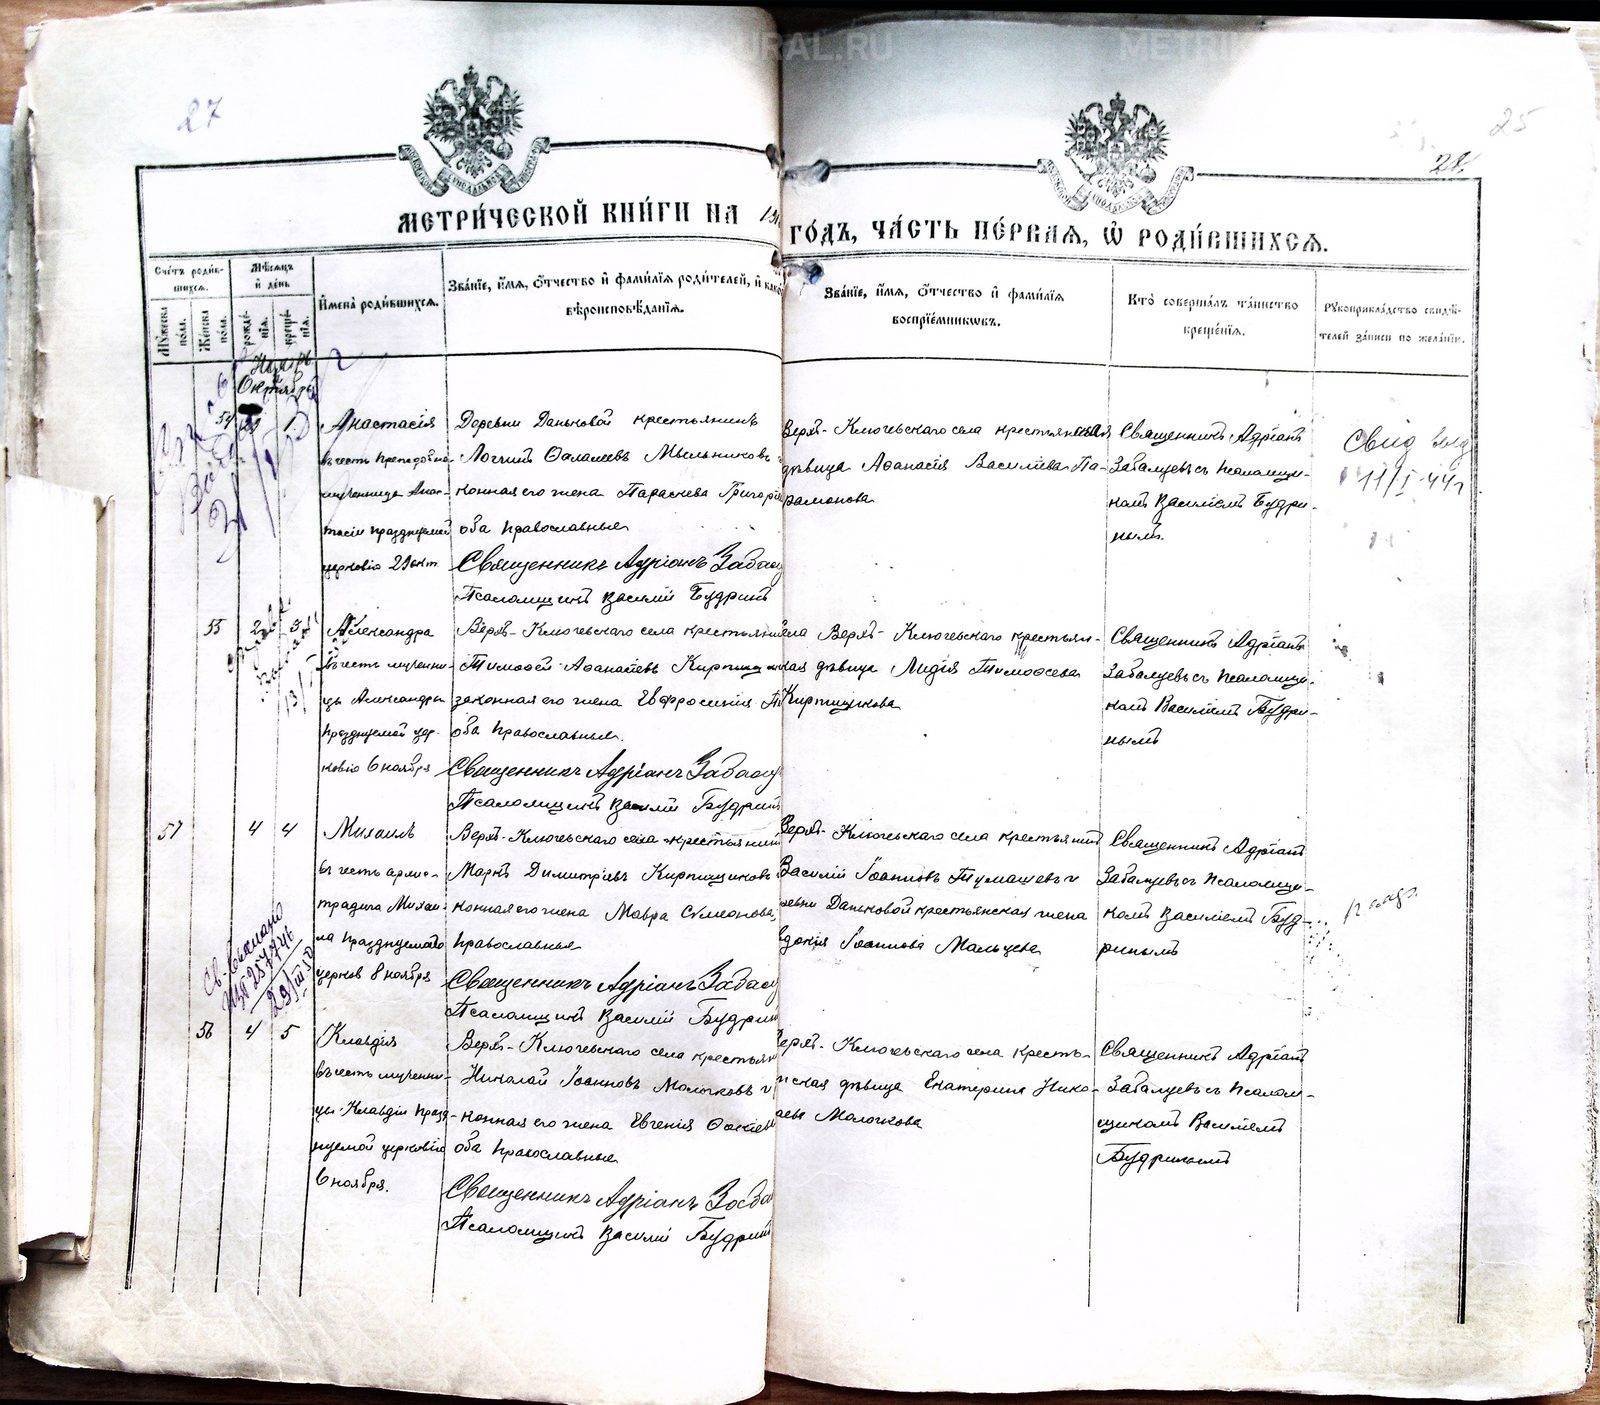 27
25
28.
МЕТРИ́ЧЕСКОЙ КНИ́ГИ НА 19
ГО́ДЪ, ЧА́СТЬ ПЕ́РВАЯ, Ѡ РОДИ́ВШИХСЯ.
Сче́тъ роди́в-
шихся.
Му́жеска пола.
Же́нска пола.
Мѣ́сяцъ
и де́нь
рожде́-
нія.
креще́-
нія.
И҆мена̀ роди́вшихся.
Зва́ніе, и҆́мя, ѻ҆́тчество и҆ фами́лія роди́телей, и҆ како́
вѣроисповѣ́данія.
Зва́ніе, и҆́мя, ѻ҆́тчество и҆ фами́лія
воспріе́мниковъ.
Кто̀ соверша́лъ та́инство
креще́нія.
Рукоприкла́дство свидѣ́-
телей за́писи по жела́нію.
Ноябрь
Октябрь
54
1.
Анастасія
въ честь преподобно-
мученницы Анас-
тасіи празднуемой
церковію 29 окт
Деревни Даньковой крестьянинъ
Логгинъ Мыльниковъ
конная его жена Параскева Григорі
оба православные
Священникъ Адріанъ Забал
Псаломщикъ Василій Будринъ
Верхъ-Ключевскаго села крестьянская
дѣвица Афанасія Василіева Па-
рамонова
Священникъ Адріанъ
Забалуевъ съ псаломщи-
комъ Василіемъ Будри-
нымъ.
11/I-44г
55
2
3
Александра
въ честь мученни-
цы Александры
празднуемой цер-
ковію 6 ноября
Верхъ-Ключевскаго села крестьянин
Тимофей Афанасіевъ Кирпищик
законная его жена Евфросинія
оба православные.
Священникъ Адріанъ Забалу
Псаломщикъ Василій Будрин
села Верхъ-Ключевскаго крестьян-
ская дѣвица Лидія Тимофеева
Кирпищикова
Священникъ Адріанъ
Забалуевъ съ псаломщи-
комъ Василіемъ Будри-
нымъ
57
4
4
Михаилъ
въ честь архис-
тратига Михаи-
ла празднуемаго
церков 8 ноября
Верхъ-Ключевскаго села крестьянин
Маркъ Димитріевъ Кирпищиковъ
конная его жена Мавра Симеонова,
православные
Священникъ Адріанъ Забалу
Псаломщикъ Василій Будрин
Верхъ-Ключевскаго села крестьянинъ
Василій Іоанновъ Тумашевъ и
ревни Даньковой крестьянская жена
вдокія Іоаннова Мальцева
Священникъ Адріанъ
Забалуевъ съ псаломщи-
комъ Василіемъ Буд-
ринымъ
56
4
5
Клавдія
въ честь мученни-
цы Клавдіи празд-
нуемой церковію
6 ноября.
Верхъ-Ключевскаго села крестьян
Николай Іоанновъ Молочковъ и
конная его жена Евгенія
оба православные
Священникъ Адріанъ Заба
Псаломщикъ Василій Будрин
Верхъ-Ключевскаго села кресть-
нская дѣвица Екатерина Нико-
аева Молочкова
Священникъ Адріанъ
Забалуевъ съ псалом-
щикомъ Василіемъ
Будринымъ